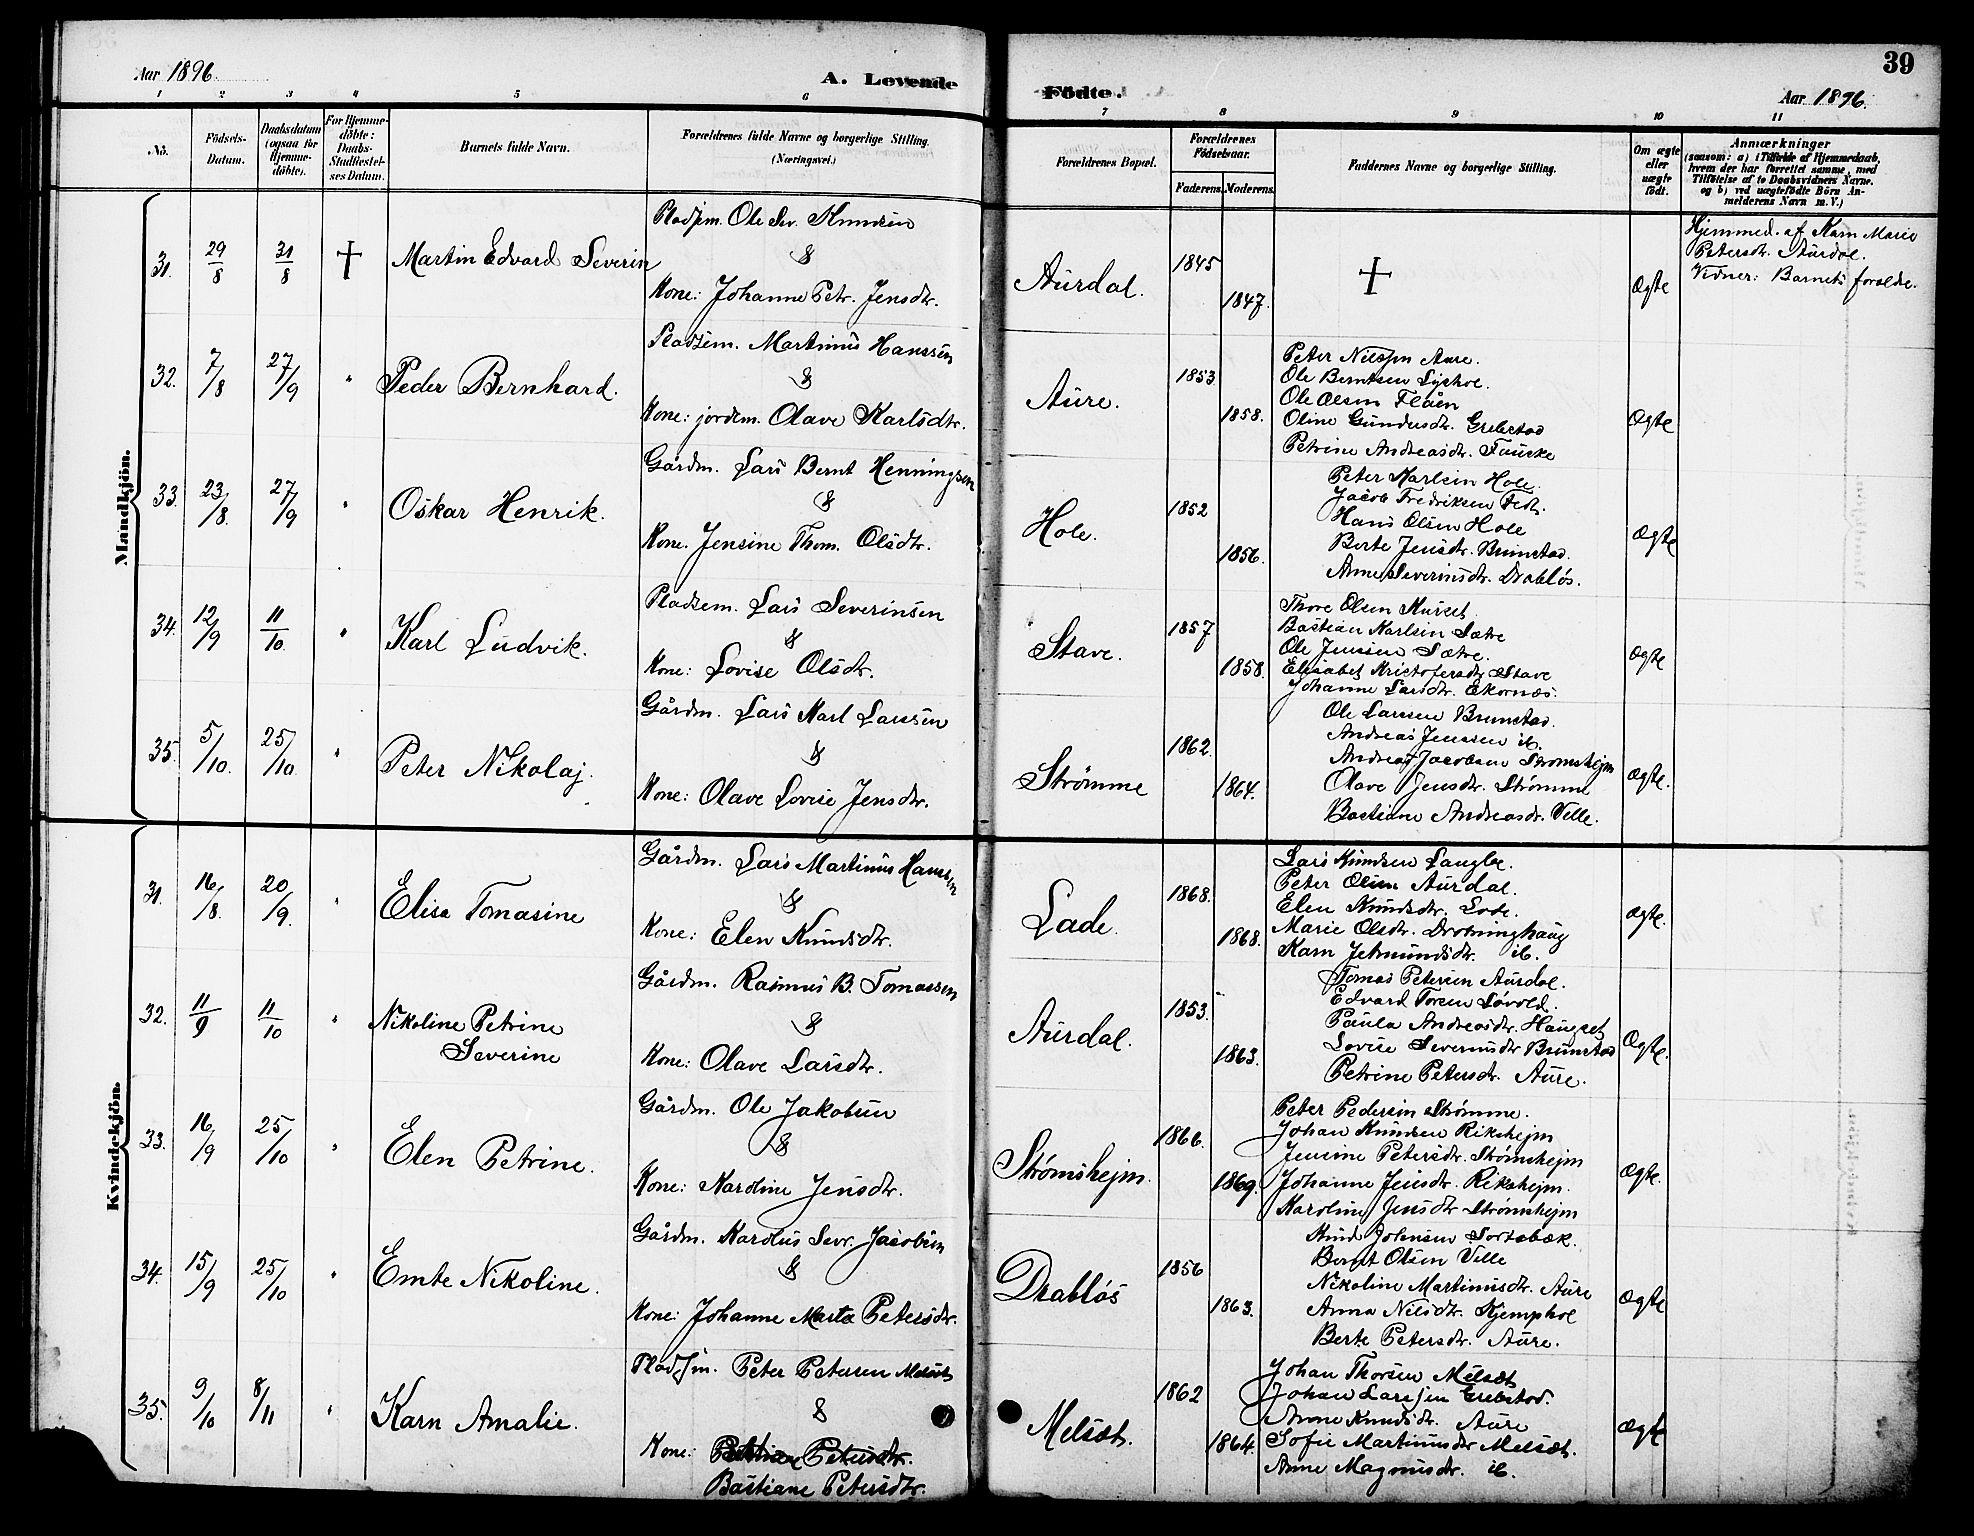 39
Aar 1896.
A. Levende
Födte.
Aar 1896.
1 2 3 4 5 6 7 8 9 10 11
No.
Födsels-
Datum.
Daabsdatum
(ogsaa for
Hjemme-
döbte).
For Hjemme-
döbte:
Daabs-
Stadfæstel-
ses Datum.
Barnets fulde Navn.
Forældrenes fulde Navne og borgerlige Stilling.
(Næringsvei.)
Forældrenes Bopæl.
Forældrenes
Födselsaar.
Faderens. Moderens.
Faddernes Navne og borgerlige Stilling.
Om ægte
eller
uægte
födt.
Anmærkninger
(saasom: a) i Tilfælde af Hjemmedaab,
hvem der har forrettet samme, med
Tilföielse af to Daabsvidners Navne.
og b) ved uægtefödte Börn An-
melderens Navn m. V.)
Mandkjön.
31. 29/8 31/8 † Martin Edvard Severin
Pladsm. Ole Sev. Knudsen
&
Kone: Johanne Petr. Jensdtr.
Aurdal. 1845 1847. † Ægte
Hjemmed. af Karn Marie
Petersdtr. Aurdal.
Vidner: Barnets forældre.
32. 7/8 27/9 " Peder Bernhard.
Pladsem. Martinus Hanssen
&
Kone: jordem. Olave Karlsdtr.
Aure. 1853 1858.
Peter Nilssen Aure.
Ole Berntsen Lyshol.
Ole Olsen Flåen
Oline Gundersdtr. Grebstad
Petrine Andreasdr. Fauske
Ægte
33. 23/8. 27/9 " Oskar Henrik.
Gårdm. Lars Bernt Henningsen
&
Kone. Jensine Thom. Olsdtr.
Hole. 1852 1856.
Peter Karlsen Hole.
Jacob Fredriksen Fedt.
Hans Olsen Hole
Berte Jensdtr. Brunstad.
Anne Severinsdtr. Drabløs.
Ægte
34. 12/9 11/10. " Karl Ludvik.
Pladsem. Lars Severinsen
&
Kone: Lovise Olsdtr.
Stave. 1857 1858.
Thore Olsen Murset
Bastian Karlsen Sætre
Ole Jenssen Sætre.
Elisabet Kristofersdtr Stave
Johanne Larsdtr. Ekornæs.
Ægte
35. 5/10. 25/10. " Peter Nikolaj.
Gårdm. Lars Karl Larssen
&
Kone: Olave Lovise Jensdtr.
Strømme 1862. 1864.
Ole Larssen Brunstad.
Andreas Jenssen ib.
Andreas Jacobsen Strømshejm
Olave Jensdtr. Strømme
Bastiane Andreasdr. Velle.
Ægte.
Kvindekjön.
31. 16/8. 20/9. " Elise Tomasine
Gårdm. Lars Martinus Hanssen
&
Kone: Elen Knudsdtr.
Lade. 1868. 1868.
Lars Knudsen Langlo.
Peter Olsen Aurdal.
Elen Knudsdtr. Lade.
Marie Olsdtr. Drotninghaug
Karn Jetmundsdtr. ib.
Ægte.
32. 11/9 11/10 " Nikoline Petrine
Severine
Gårdm. Rasmus B. Tomassen
&
Kone: Olave Larsdtr.
Aurdal. 1853. 1863.
Tomas Petersen Aurdal.
Edvard Toresen Løvold.
Paula Andreasdtr. Haugset
Lovise Severinsdtr Brunstad
Petrine Petersdtr. Aure.
Ægte.
33. 16/9 25/10 " Elen Petrine.
Gårdm. Ole Jakobsen
&
Kone: Karoline Jensdtr.
Strømshejm. 1866. 1869.
Peter Pedersen Strømme.
Johan Knudsen Rikshejm
Jensine Petersdtr. Strømshejm
Johanne Jensdtr. Rikshejm.
Karoline Jensdtr Strømshejm
Ægte.
34. 15/9 25/10 " Emte Nikoline.
Gårdm. Karolus Sevr. Jacobsen
&
Kone: Johanne Marta Petersdtr.
Drabløs 1856 1863.
Knud Johnsen Sortebæk.
Bernt Olsen Velle
Nikoline Martinusdtr. Aure
Anna Nilsdtr. Kjemphol
Berte Petersdtr. Aure.
Ægte
35. 9/10 8/11 " Karn Amalie.
Pladsm. Peter Petersen Melsæt
&
Kone: Petersdtr.
Bastiane Petersdtr.
Melsæt. 1862 1864.
Johan Thorsen Melsæt
Johan Larssen Grebstad.
Anne Knudsdtr. Aure
Sofie Martinusdtr Melsæt.
Anne Magnusdr. ib.
Ægte